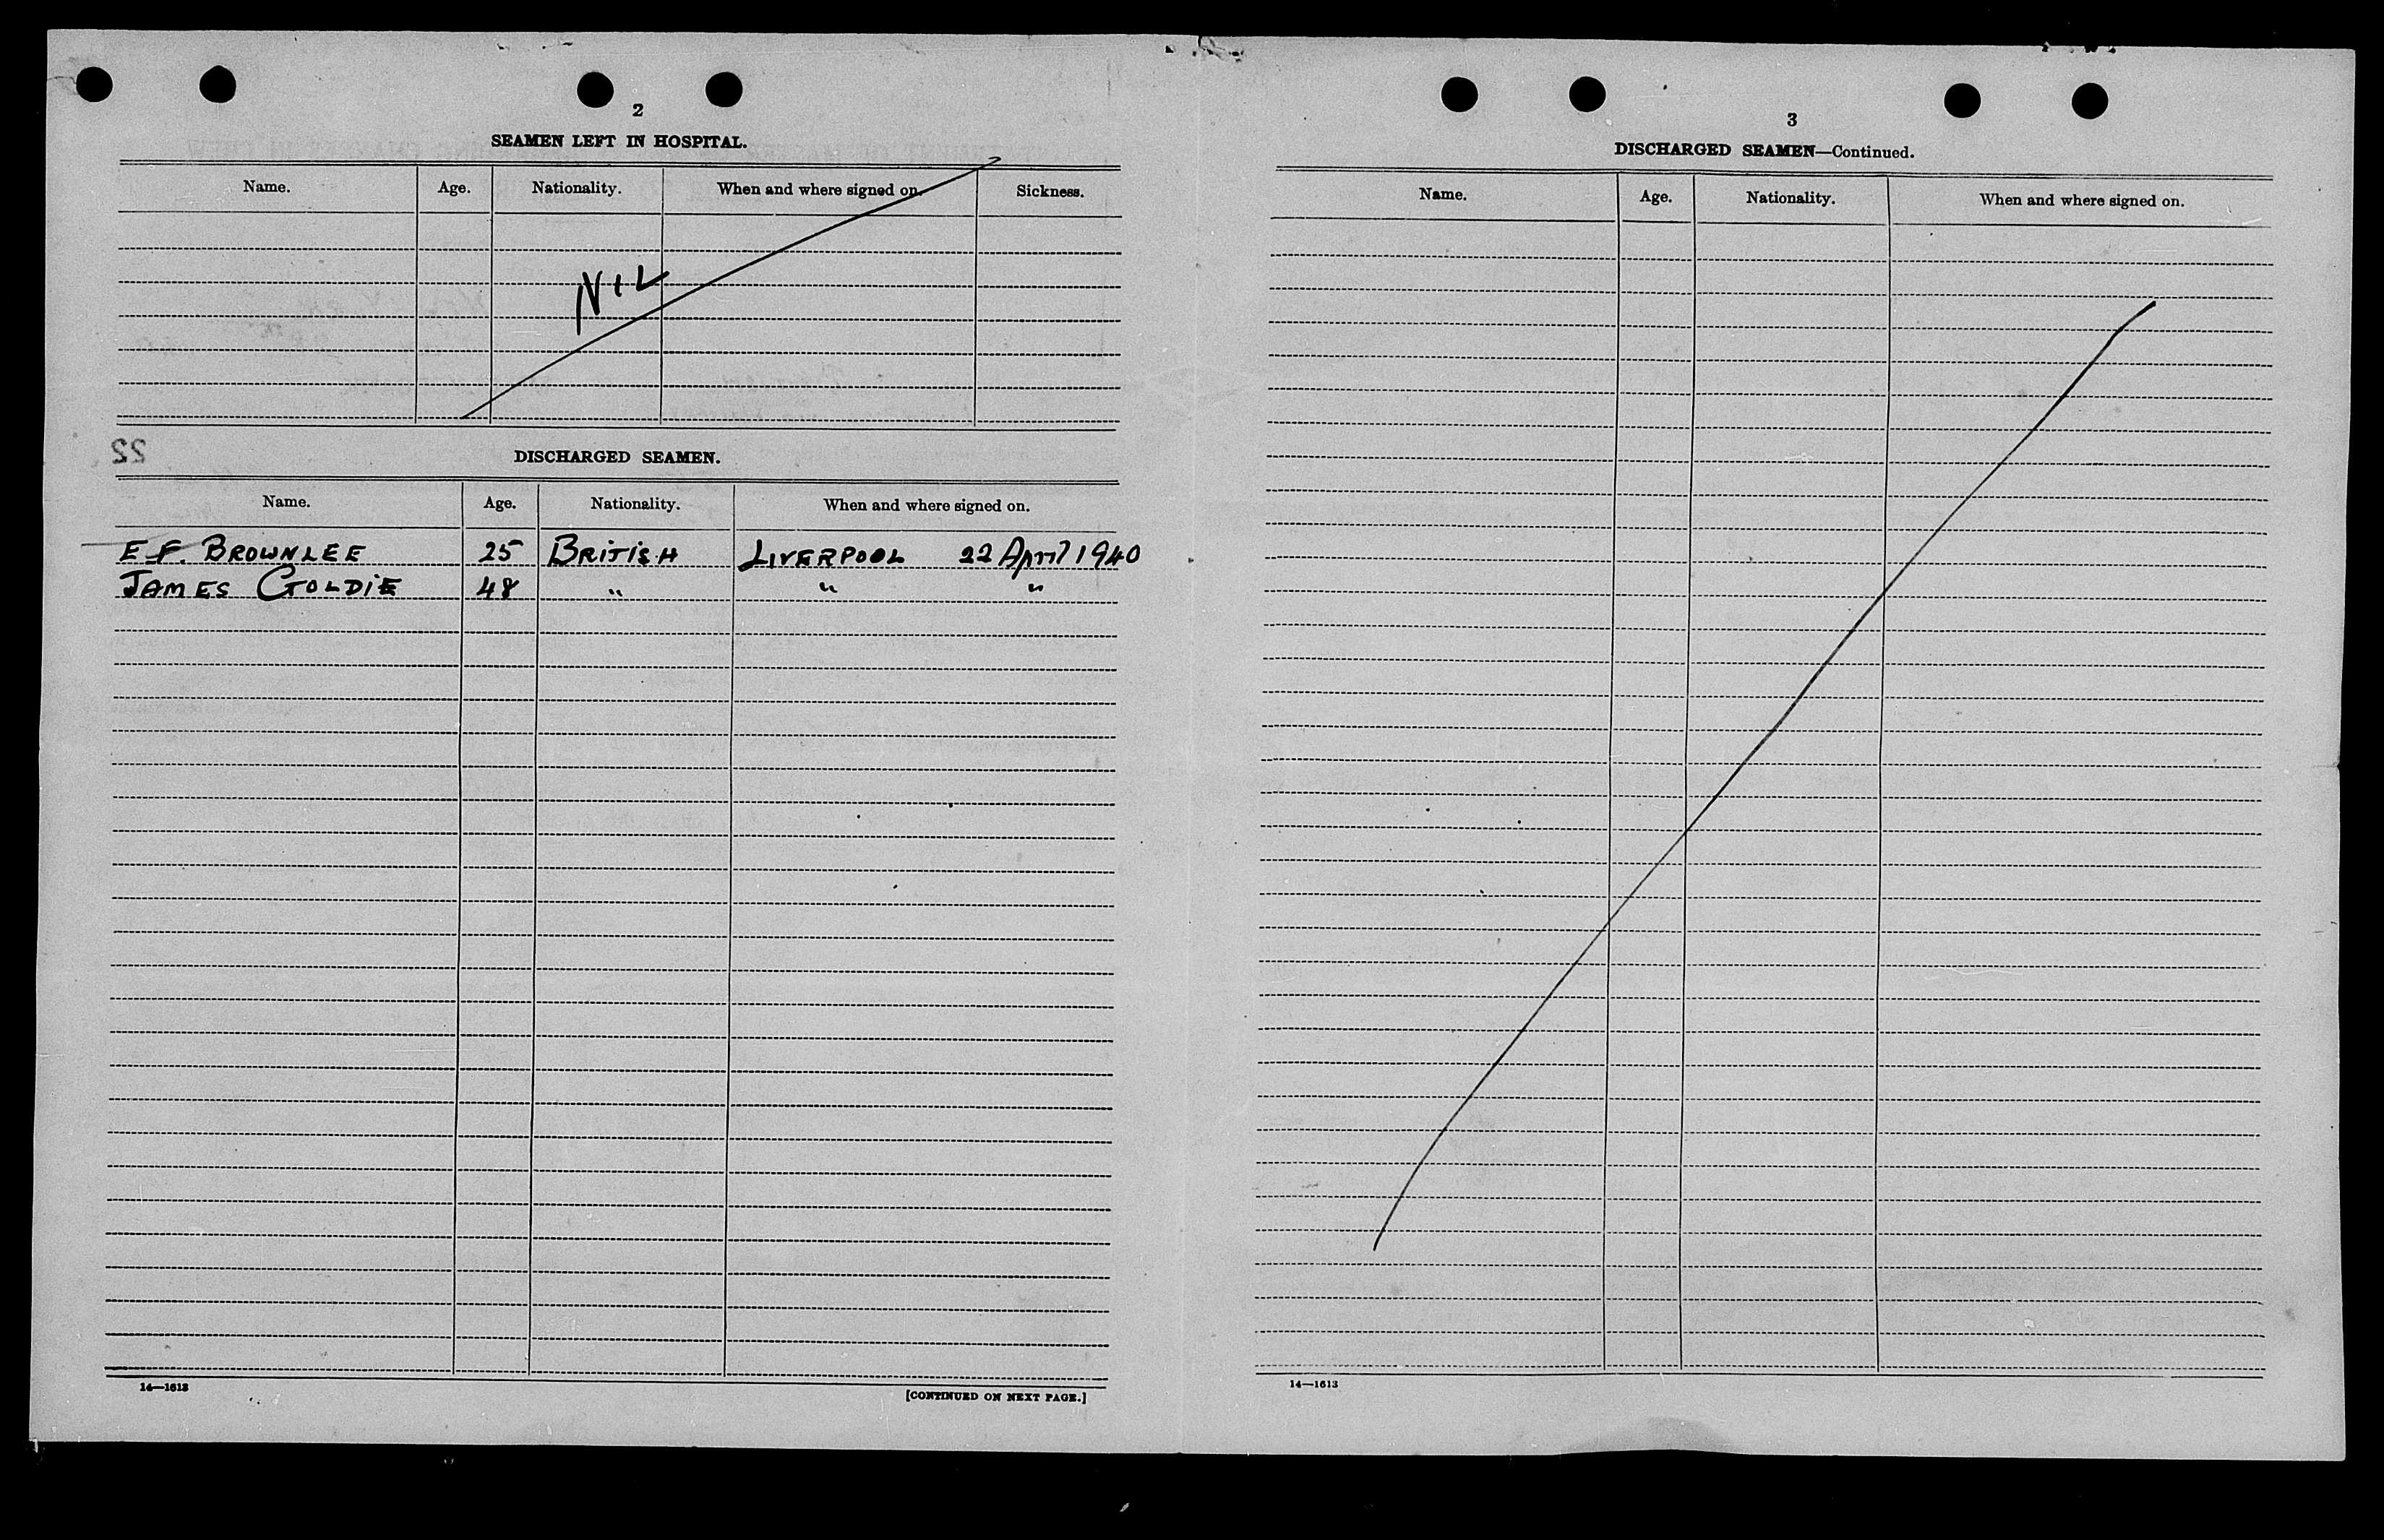 2
SEAMEN LEFT IN HOSPITAL.
Name. Age. Nationality. When and where signed on. Sickness.
NIL
22
DISCHARGED SEAMEN.
Name. Age. Nationality. When and where signed on.
E F. BROWNLEE 25 BRITISH LIVERPOOL 22 April 1940
JAMES GOLDIE 48 " " "
14—1613
[CONTINUED ON NEXT PAGE.]
3
DISCHARGED SEAMEN—Continued.
Name. Age. Nationality. When and where signed on.
14—1613